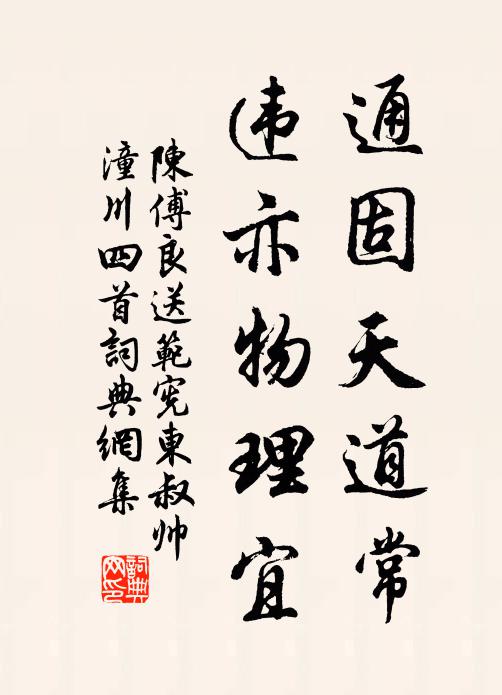 通固天道常
违亦物理宜
陳傅良送範宪東叔帅
潼川四首詞典網集
詞典网印